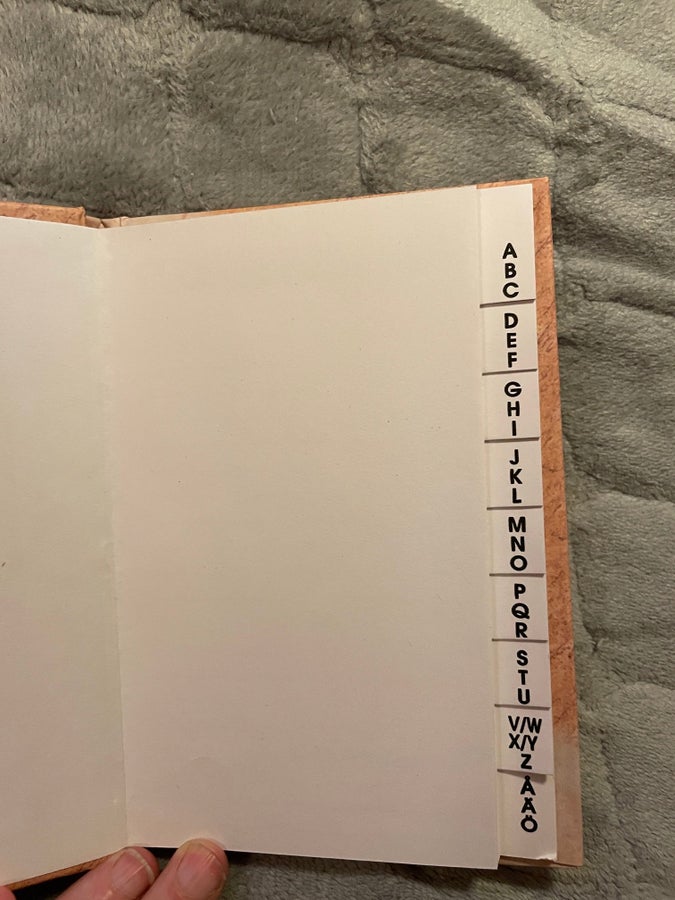 A
B
C
D
E
F
G
H
I
J
K
L
M
N
O
P
Q
R
S
T
U
V/W
X/Y
Z
Å
Ä
Ö